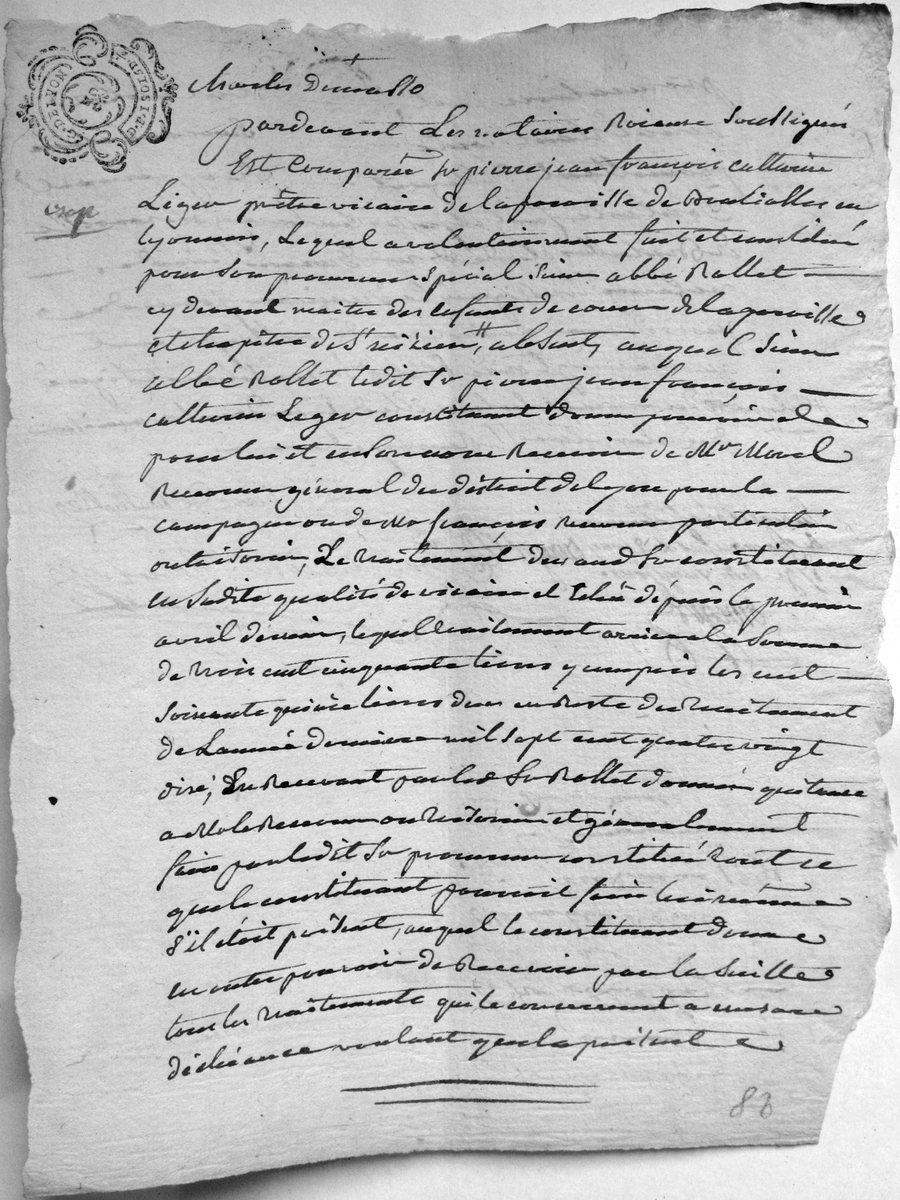 G. DE LYON
pardevant Les notaires Roiaux Soussignés
Est Comparü Sr pierre jean françois catherin
exp
Leger prêtre vicaire de la paroisse de en
Lyonnois, Lequel a volontairement fait et constitué
pour Son procureur Spécial Sieur abbé Rollet
cy devant maitre des Enfants de coeur de la paroisse
et chapitre de St absent, auquel Sieur
abbé Rollet ledit Sr pierre jean françois
catherin Leger constituant donne pouvoir de
pour lui et en Son nom Recevoir de Mr Morel
Receveur général du district de Lyon pour la
campagne ou de Mr françois Receveur particulier
ou tresorier, Le traitement du aud Sr constituant
en Sadite qualité de vicaire et Echü dépuis le premier
avril dernier, lequel traitement arrive a la Somme
de trois cent cinquante livres y compris les cent
Soixante quinze livres dues en Reste du traitement
de L'année derniere mil sept cent quatre vingt
dixe, En Recevant par led Sr Rollet donner quittance
a Mr le Receveur ou tresorier et généralement
faire par ledit Sr procureur constitué tout ce
que le constituant pourroit faire lui même
S'il étoit présent, auquel le constituant donne
en outre pouvoir de Recevoir par la Suitte
tous les traitements qui le concernent a mesure
d'échéance voulant que la présente
83